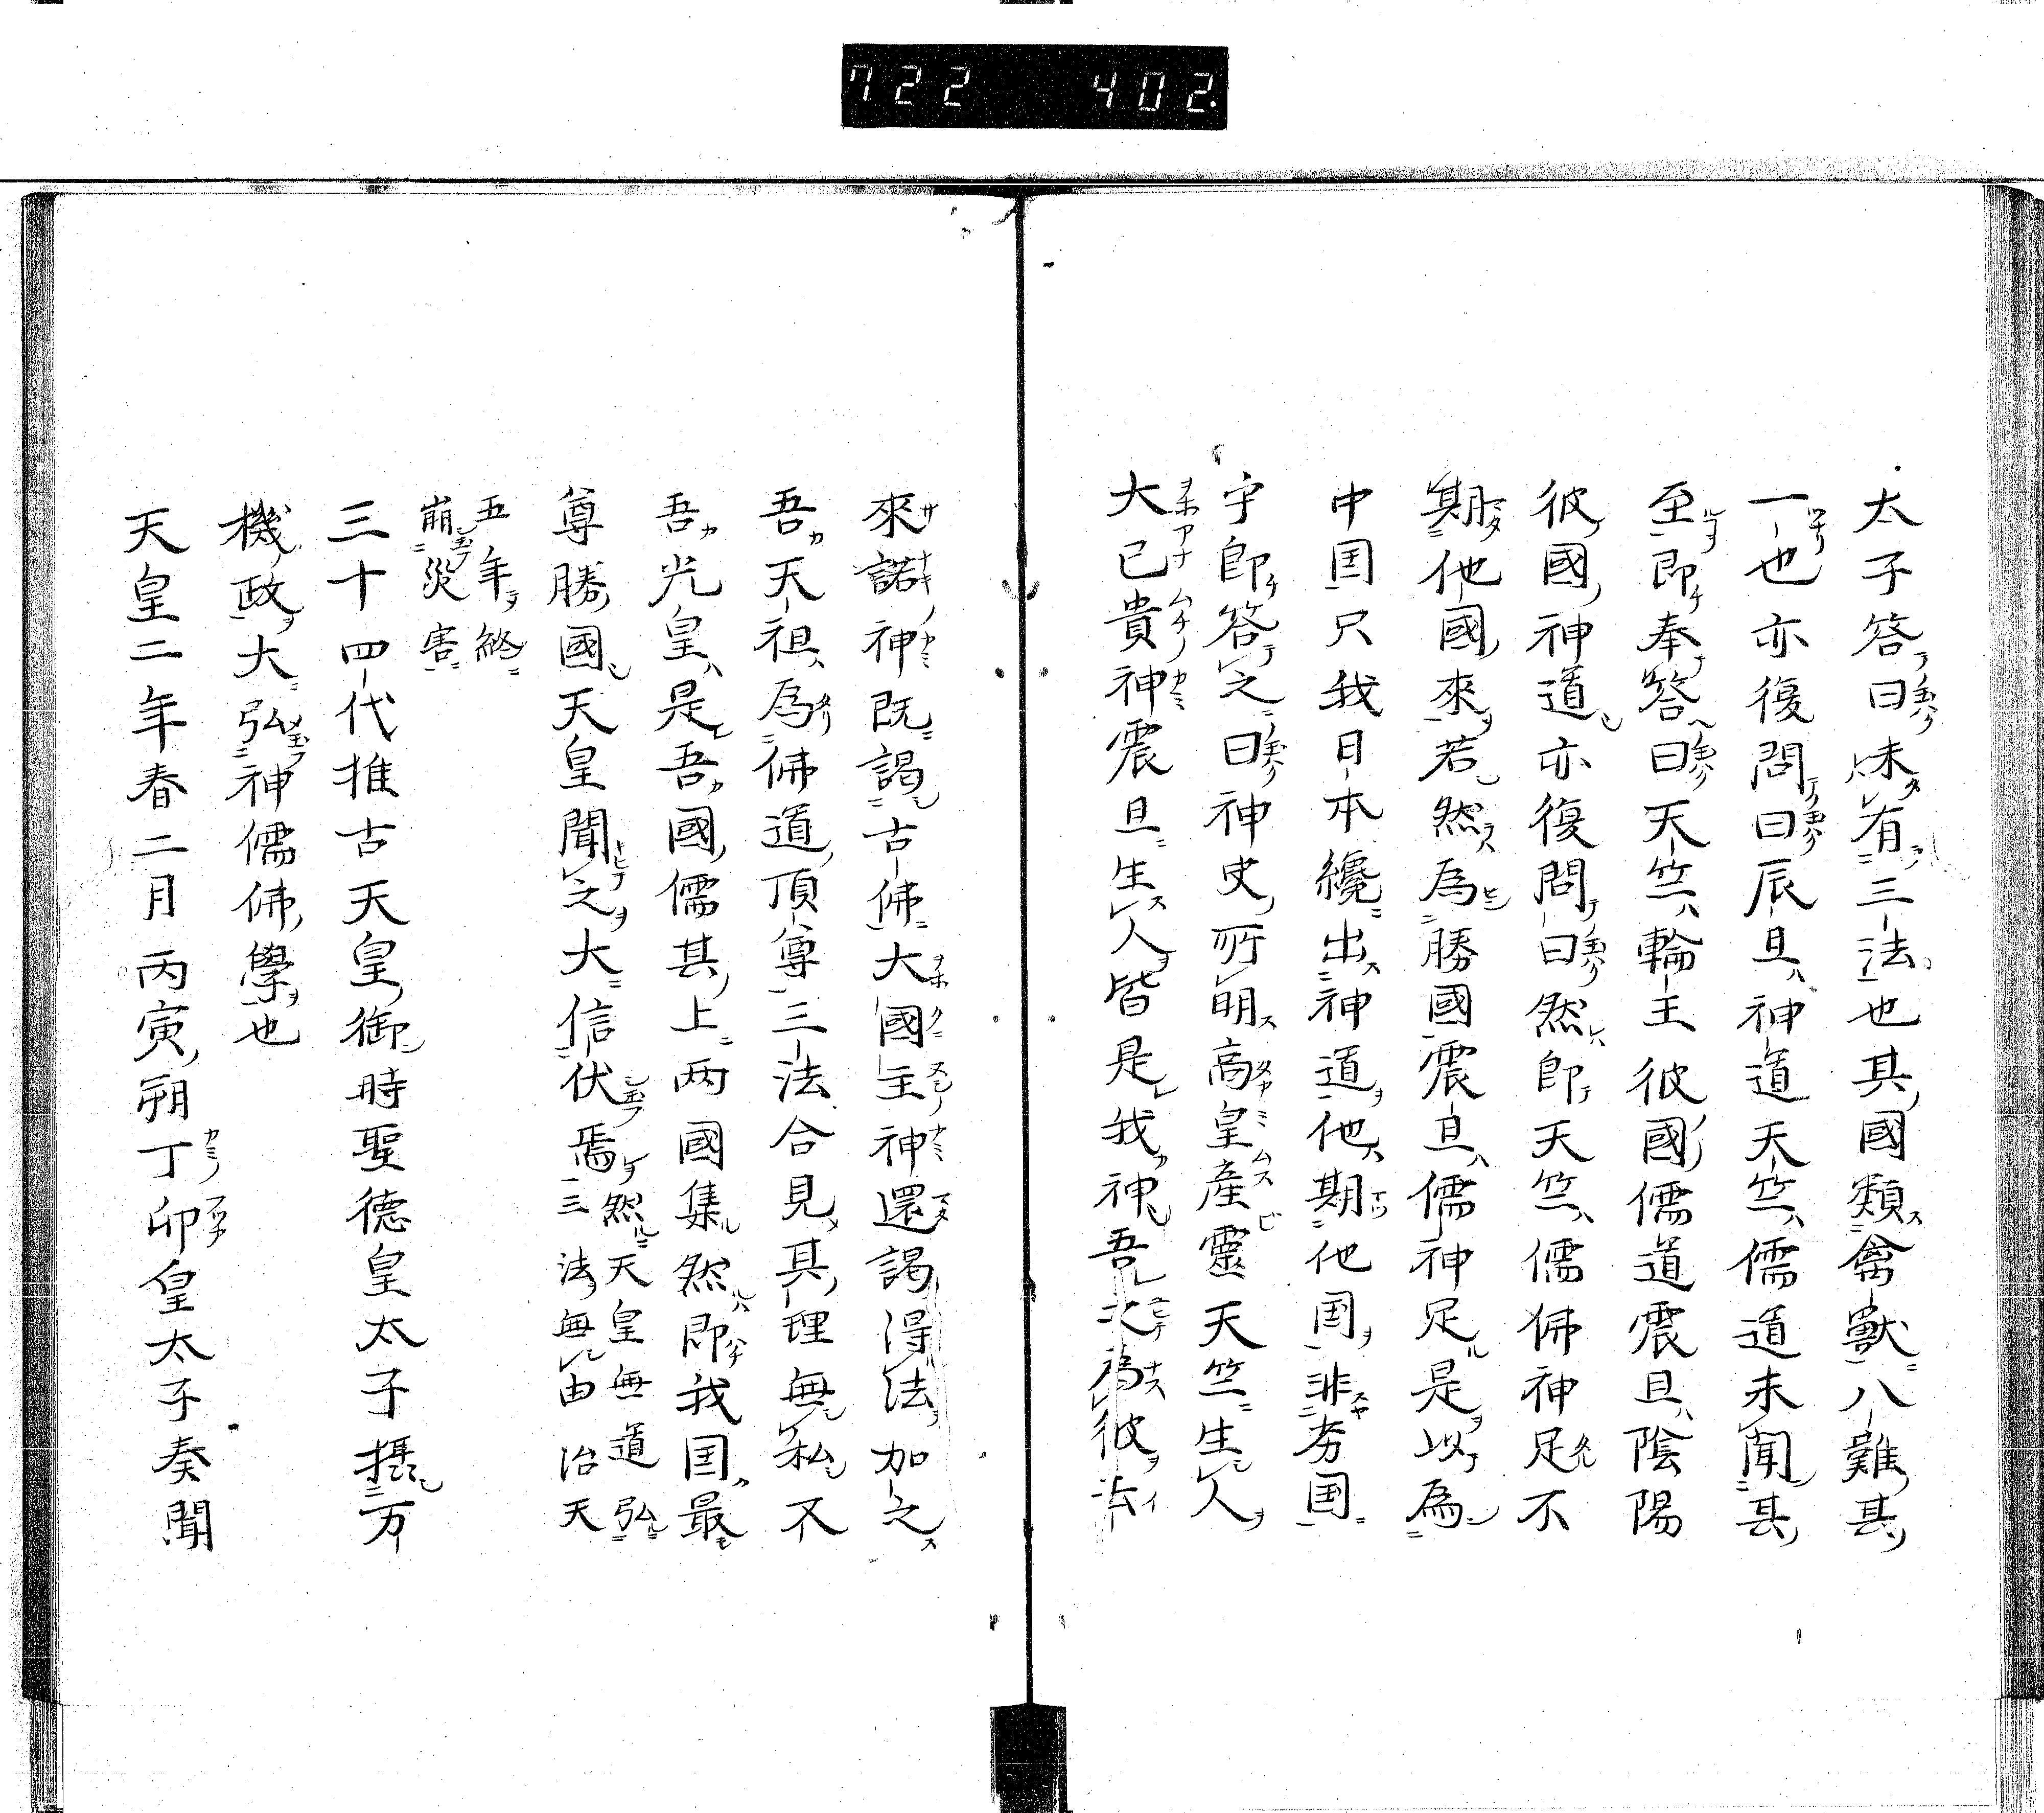 722 402.
太子答曰未有三法也其國類禽獸八難其
一也亦復問曰辰旦神道天竺儒道未聞其
至即奉答曰天竺輪王彼國儒道震旦陰陽
彼國神道亦復問曰然即天竺儒佛神足不
期他國來若然為勝國震旦儒神足是以為
中国只我日本纔出神道他期他国非夯国
守即答之曰神史所明高皇產靈天竺生人
大已貴神震旦生人皆是我神吾之為彼法
來諾神既謁古佛大國主神還謁得法加之
吾天祖為佛道頂尊三法合見其理無私不
吾光皇是吾國儒其上两國集然即我国最
尊勝國天皇聞之大信伏焉然天皇無道弘
三法無由治天
五年終
崩災害
三十四代推古天皇御時聖德皇太子摂万
機政大弘神儒佛學也
天皇二年春二月丙寅朔丁卯皇太子奏聞